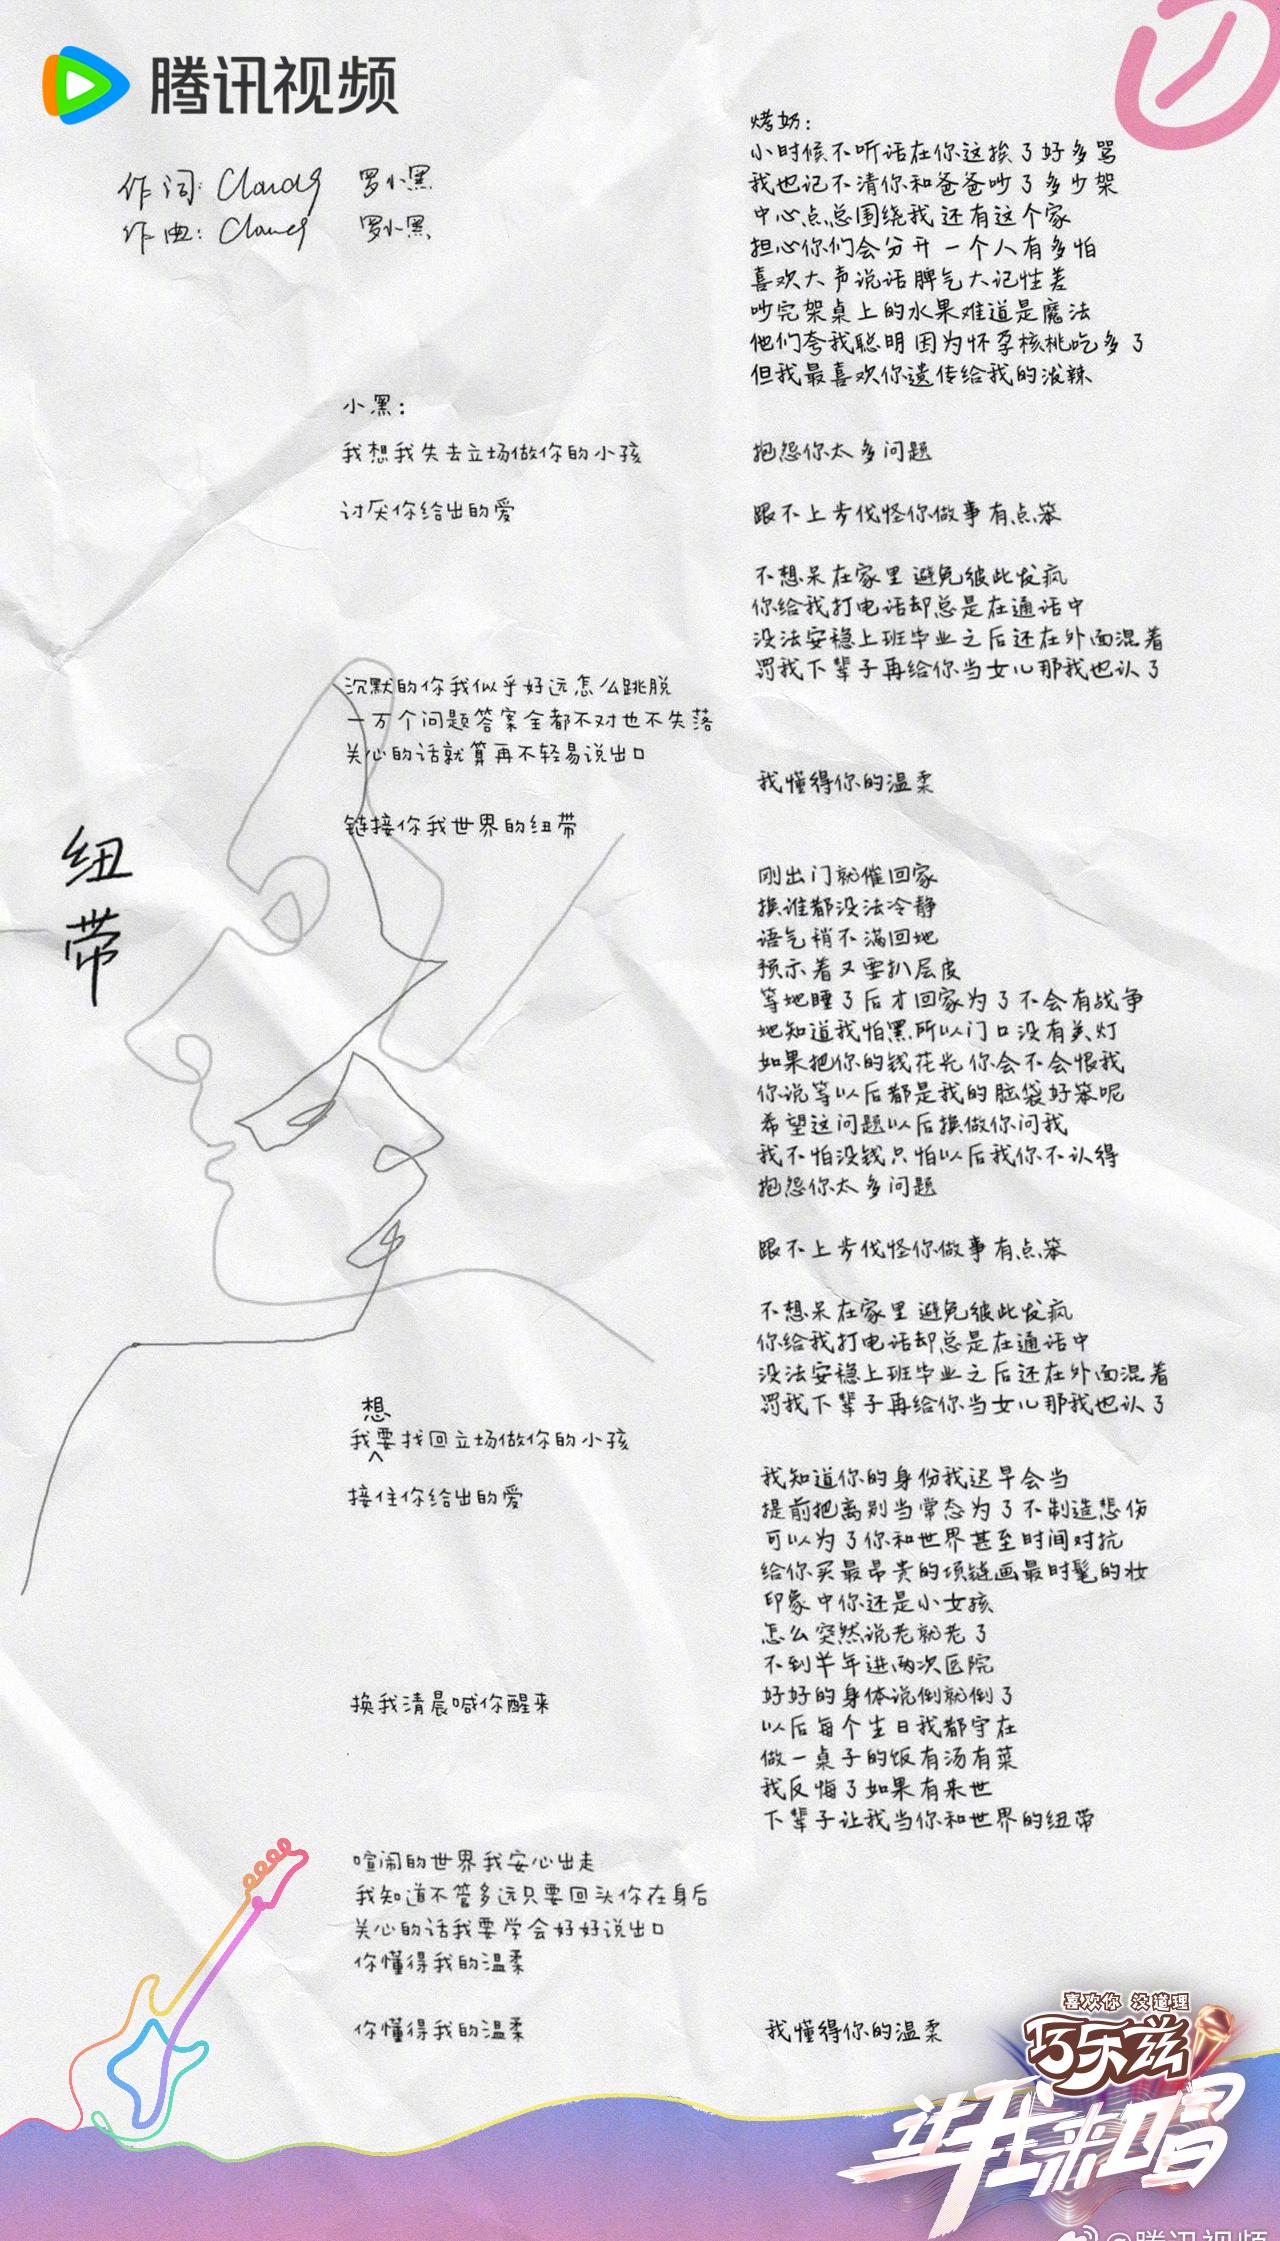 腾讯视频
作词: Cloudy 罗小黑
作曲: Cloudy 罗小黑
纽带
小黑:
我想我失去立场做你的小孩
讨厌你给出的爱
沉默的你我似乎好远怎么跳脱
一万个问题答案全都不对也不失落
关心的话就算再不轻易说出口
链接你我世界的纽带
想
我要找回立场做你的小孩
接住你给出的爱
换我清晨喊你醒来
喧闹的世界我安心出走
我知道不管多远只要回头你在身后
关心的话我要学会好好说出口
你懂得我的温柔
你懂得我的温柔
烤奶:
小时候不听话在你这挨了好多骂
我也记不清你和爸爸吵了多少架
中心点总围绕我还有这个家
担心你们会分开一个人有多怕
喜欢大声说话脾气大记性差
吵完架桌上的水果难道是魔法
他们夸我聪明因为怀孕核桃吃多了
但我最喜欢你遗传给我的泼辣
抱怨你太多问题
跟不上步伐怪你做事有点笨
不想呆在家里避免彼此发疯
你给我打电话却总是在通话中
没法安稳上班毕业之后还在外面混着
罚我下辈子再给你当女儿那我也认了
我懂得你的温柔
刚出门就催回家
换谁都没法冷静
语气稍不满回她
预示着又要扒层皮
等她睡了后才回家为了不会有战争
她知道我怕黑所以门口没有关灯
如果把你的钱花光你会不会恨我
你说等以后都是我的脑袋好笨呢
希望这问题以后换做你问我
我不怕没钱只怕以后我你不认得
抱怨你太多问题
跟不上步伐怪你做事有点笨
不想呆在家里避免彼此发疯
你给我打电话却总是在通话中
没法安稳上班毕业之后还在外面混着
罚我下辈子再给你当女儿那我也认了
我知道你的身份我迟早会当
提前把离别当常态为了不制造悲伤
可以为了你和世界甚至时间对抗
给你买最昂贵的项链画最时髦的妆
印象中你还是小女孩
怎么突然说老就老了
不到半年进两次医院
好好的身体说倒就倒了
以后每个生日我都守在
做一桌子的饭有汤有菜
我反悔了如果有来世
下辈子让我当你和世界的纽带
我懂得你的温柔
喜欢你 没道理
巧乐兹
斗我来唱
@腾讯视频